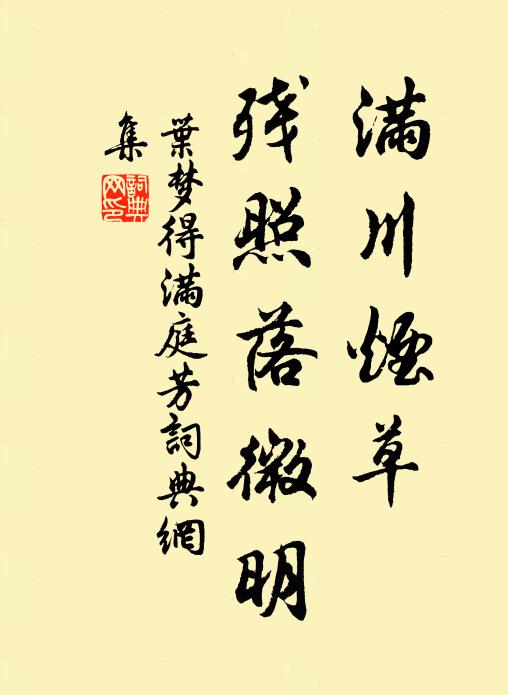 满川煙草
残照落微明
葉梦得满庭芳詞典網
集
詞典网印